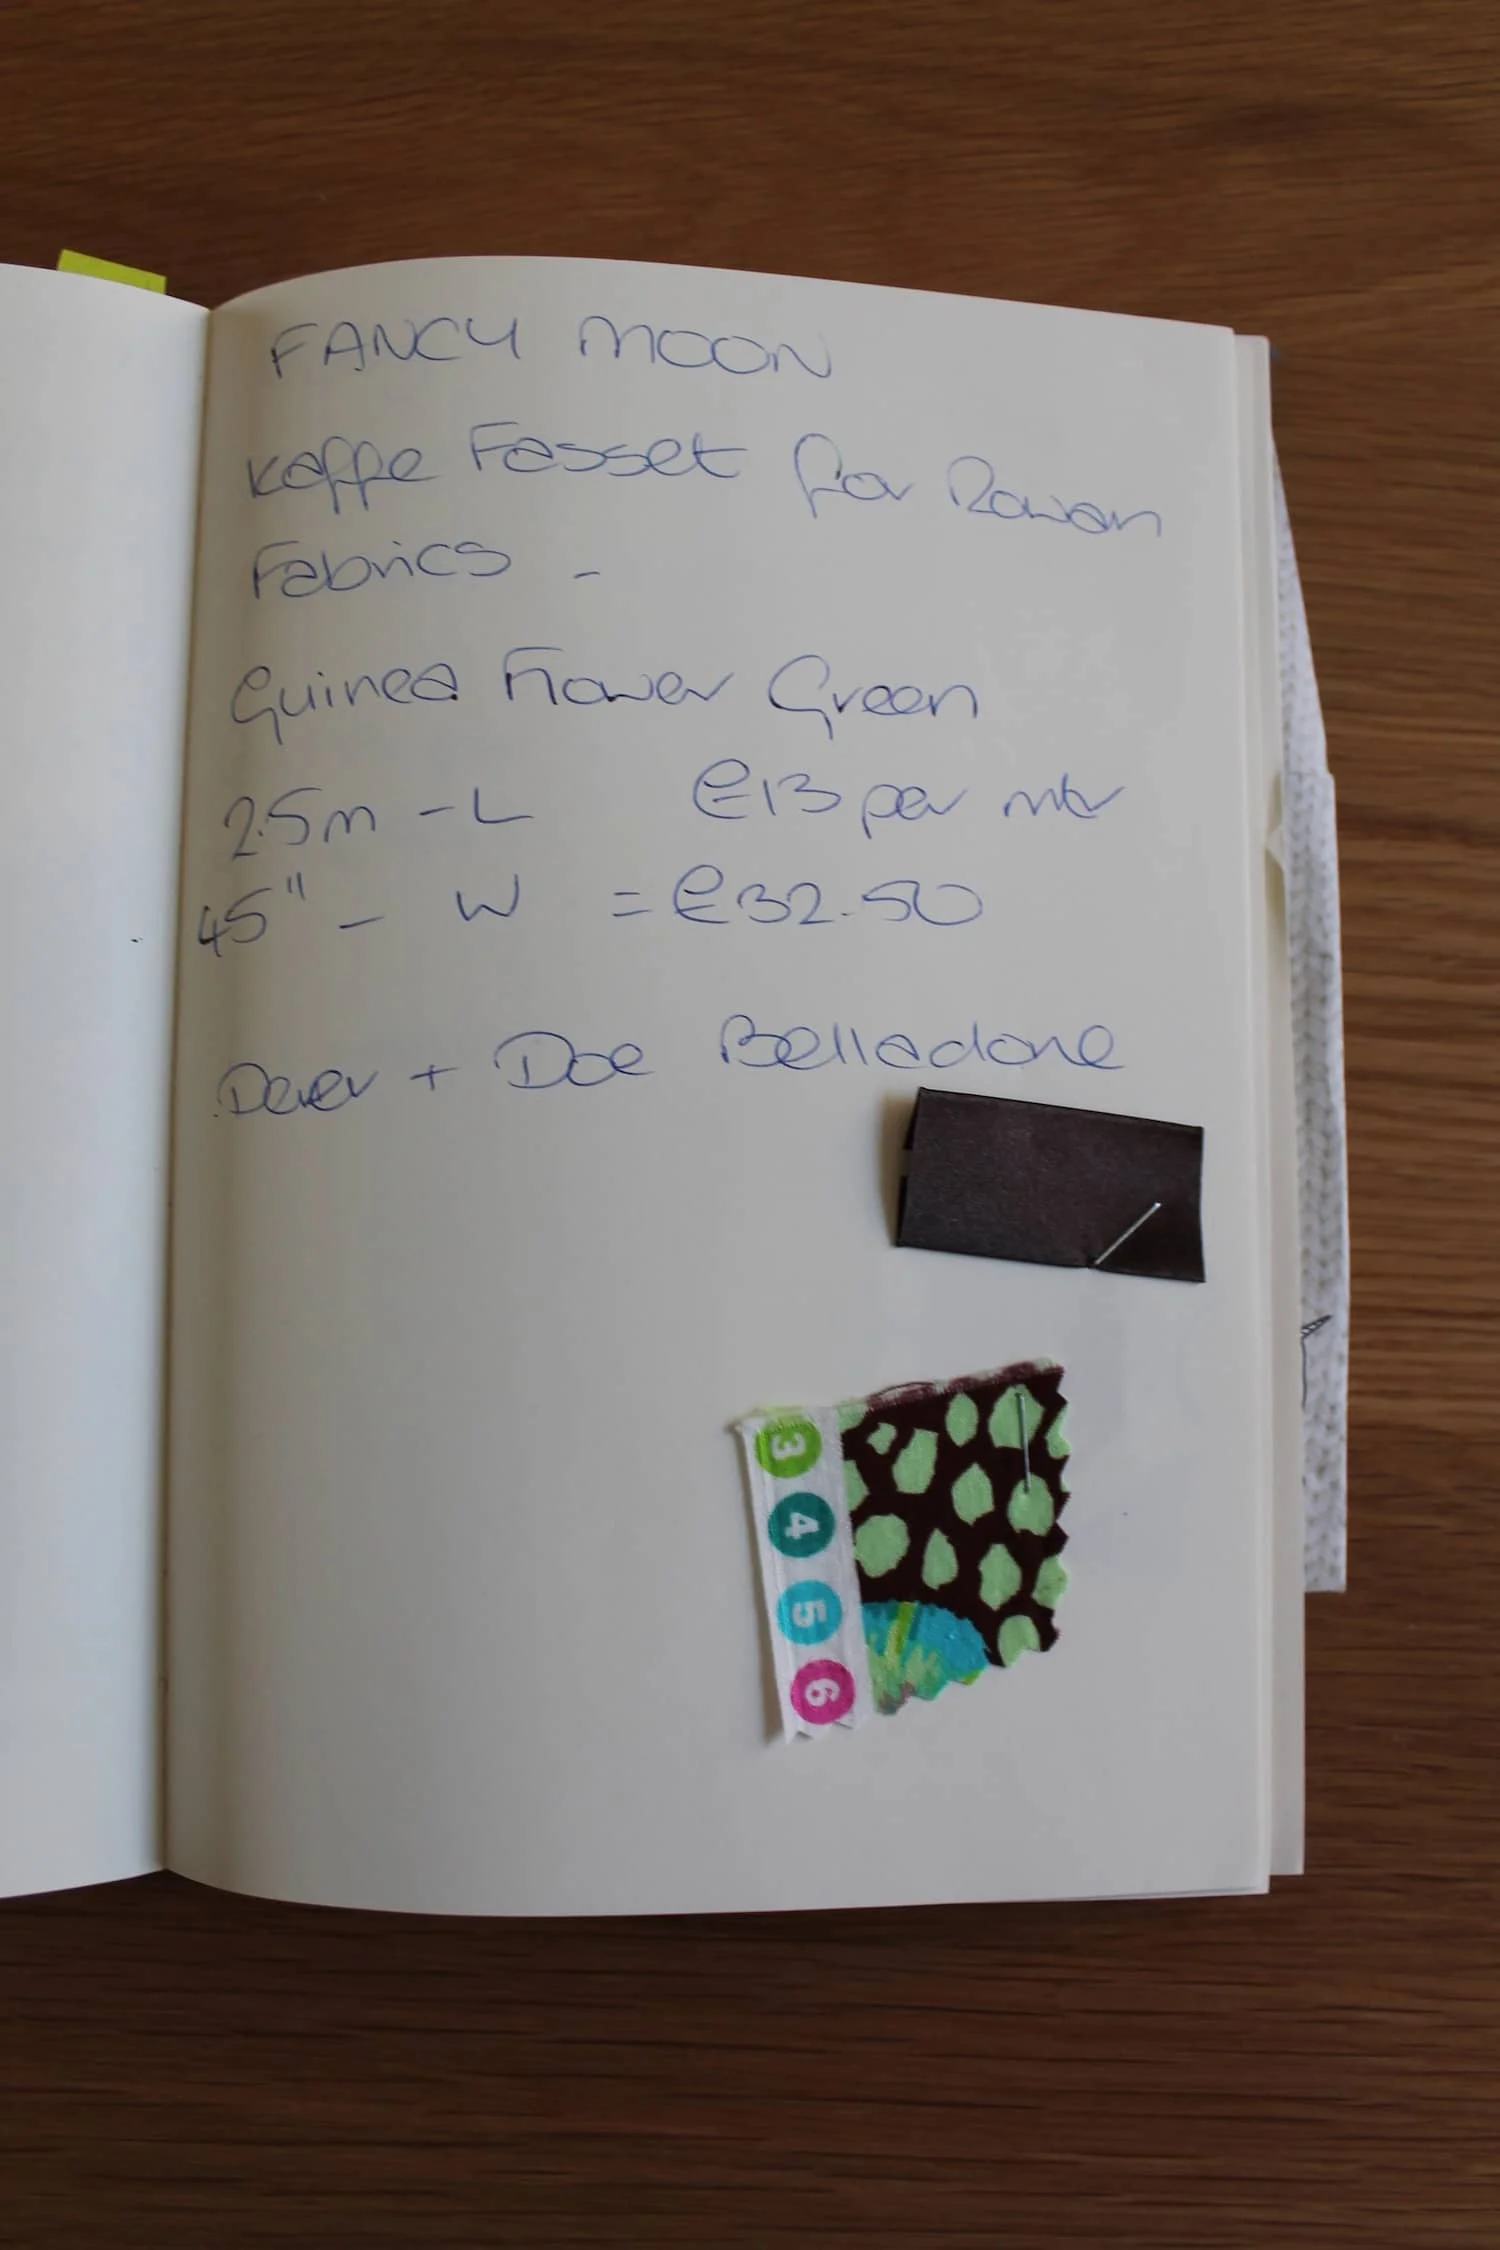 FANCY MOON
Kaffe Fasset for Rowan
Fabrics -
Guinea Flower Green
2.5m - L £13 per mtr
45" - W = £32.50
Deer + Doe Belladone
3
4
5
6